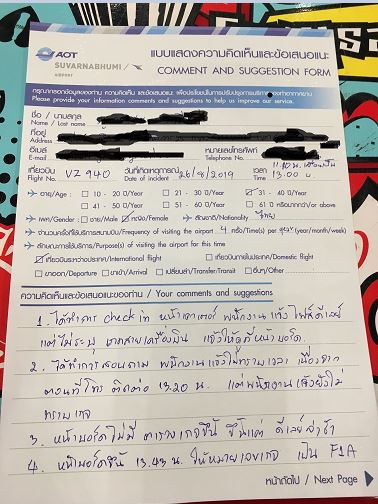 AOT
SUVARNABHUMI
AIRPORT
แบบแสดงความคิดเห็นและข้อเสนอแนะ
COMMENT AND SUGGESTION FORM
กรุณากรอกข้อมูลของท่าน ความคิดเห็น และข้อเสนอแนะ เพื่อประโยชน์ในการปรับปรุงการบริการของท่าอากาศยาน
Please provide your information comments and suggestions to help us improve our service.
ชื่อ / นามสกุล
Name / Last name
ที่อยู่
Address
อีเมล์ หมายเลขโทรศัพท์
E-mail Telephone No.
เที่ยวบิน VZ 940 วันที่เกิดเหตุการณ์ 26/8/2019 เวลา 13.00 น
Flight No. Date of incident Time
อายุ/Age: 10 - 20 ปี/Year 21 - 30 ปี/Year 31 - 40 ปี/Year
41 - 50 ปี/Year 51 - 60 ปี/Year 61 ปี หรือมากกว่า/or above
เพศ/Gender: ชาย/Male หญิง/Female สัญชาติ/Nationality ไทย
จำนวนครั้งที่ใช้บริการสนามบิน/Frequency of visiting the airport 4 ครั้ง/Time(s) per (year/month/week)
ลักษณะการใช้บริการ/Purpose(s) of visiting the airport for this time
เที่ยวบินระหว่างประเทศ/International flight เที่ยวบินภายในประเทศ/Domestic flight
ขาออก/Departure ขาเข้า/Arrival เปลี่ยนลำ/Transfer/Transit อื่นๆ/Other
ความคิดเห็นและข้อเสนอแนะของท่าน / Your comments and suggestions
1. ได้ทำการ check in หน้าเคาเตอร์ พนักงานแจ้ง ไฟล์ดีเลย์
แต่ไม่ระบุ เกตสายเครื่องบิน แจ้งให้ดูที่หน้าบอร์ด.
2. ได้ทำการสอบถาม พนักงานแจ้งไม่ทราบเวลา เนื่องจาก
ตอนที่โทร ติดต่อ 13.20 น. แต่พนักงานแจ้งยังไม่
ทราบเกจ
3. หน้าบอร์ดไม่มี ตารางเกจขึ้น ขึ้นแค่ ดีเลย์ล่าช้า
4. หน้าบอร์ดขึ้น 13.43 น. ให้หมายเลขเกจ เป็น F1A
หน้าถัดไป / Next Page